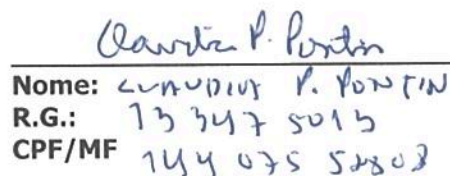 Claudia P. Pontin
Nome: CLAUDIA P. PONTIN
R.G.: 13 347 5013
CPF/MF 144 075 52803